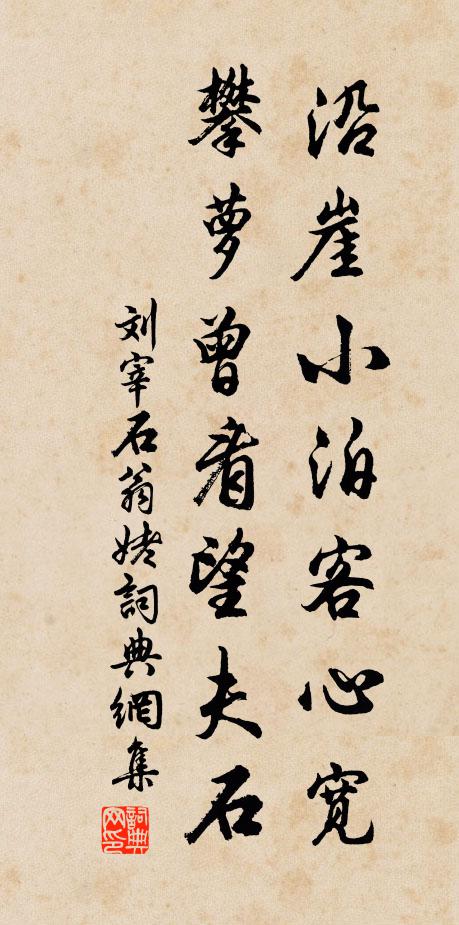 沿崖小泊客心寛
攀萝曾看望夫石
刘宰石翁姥詞典網集
詞典网印